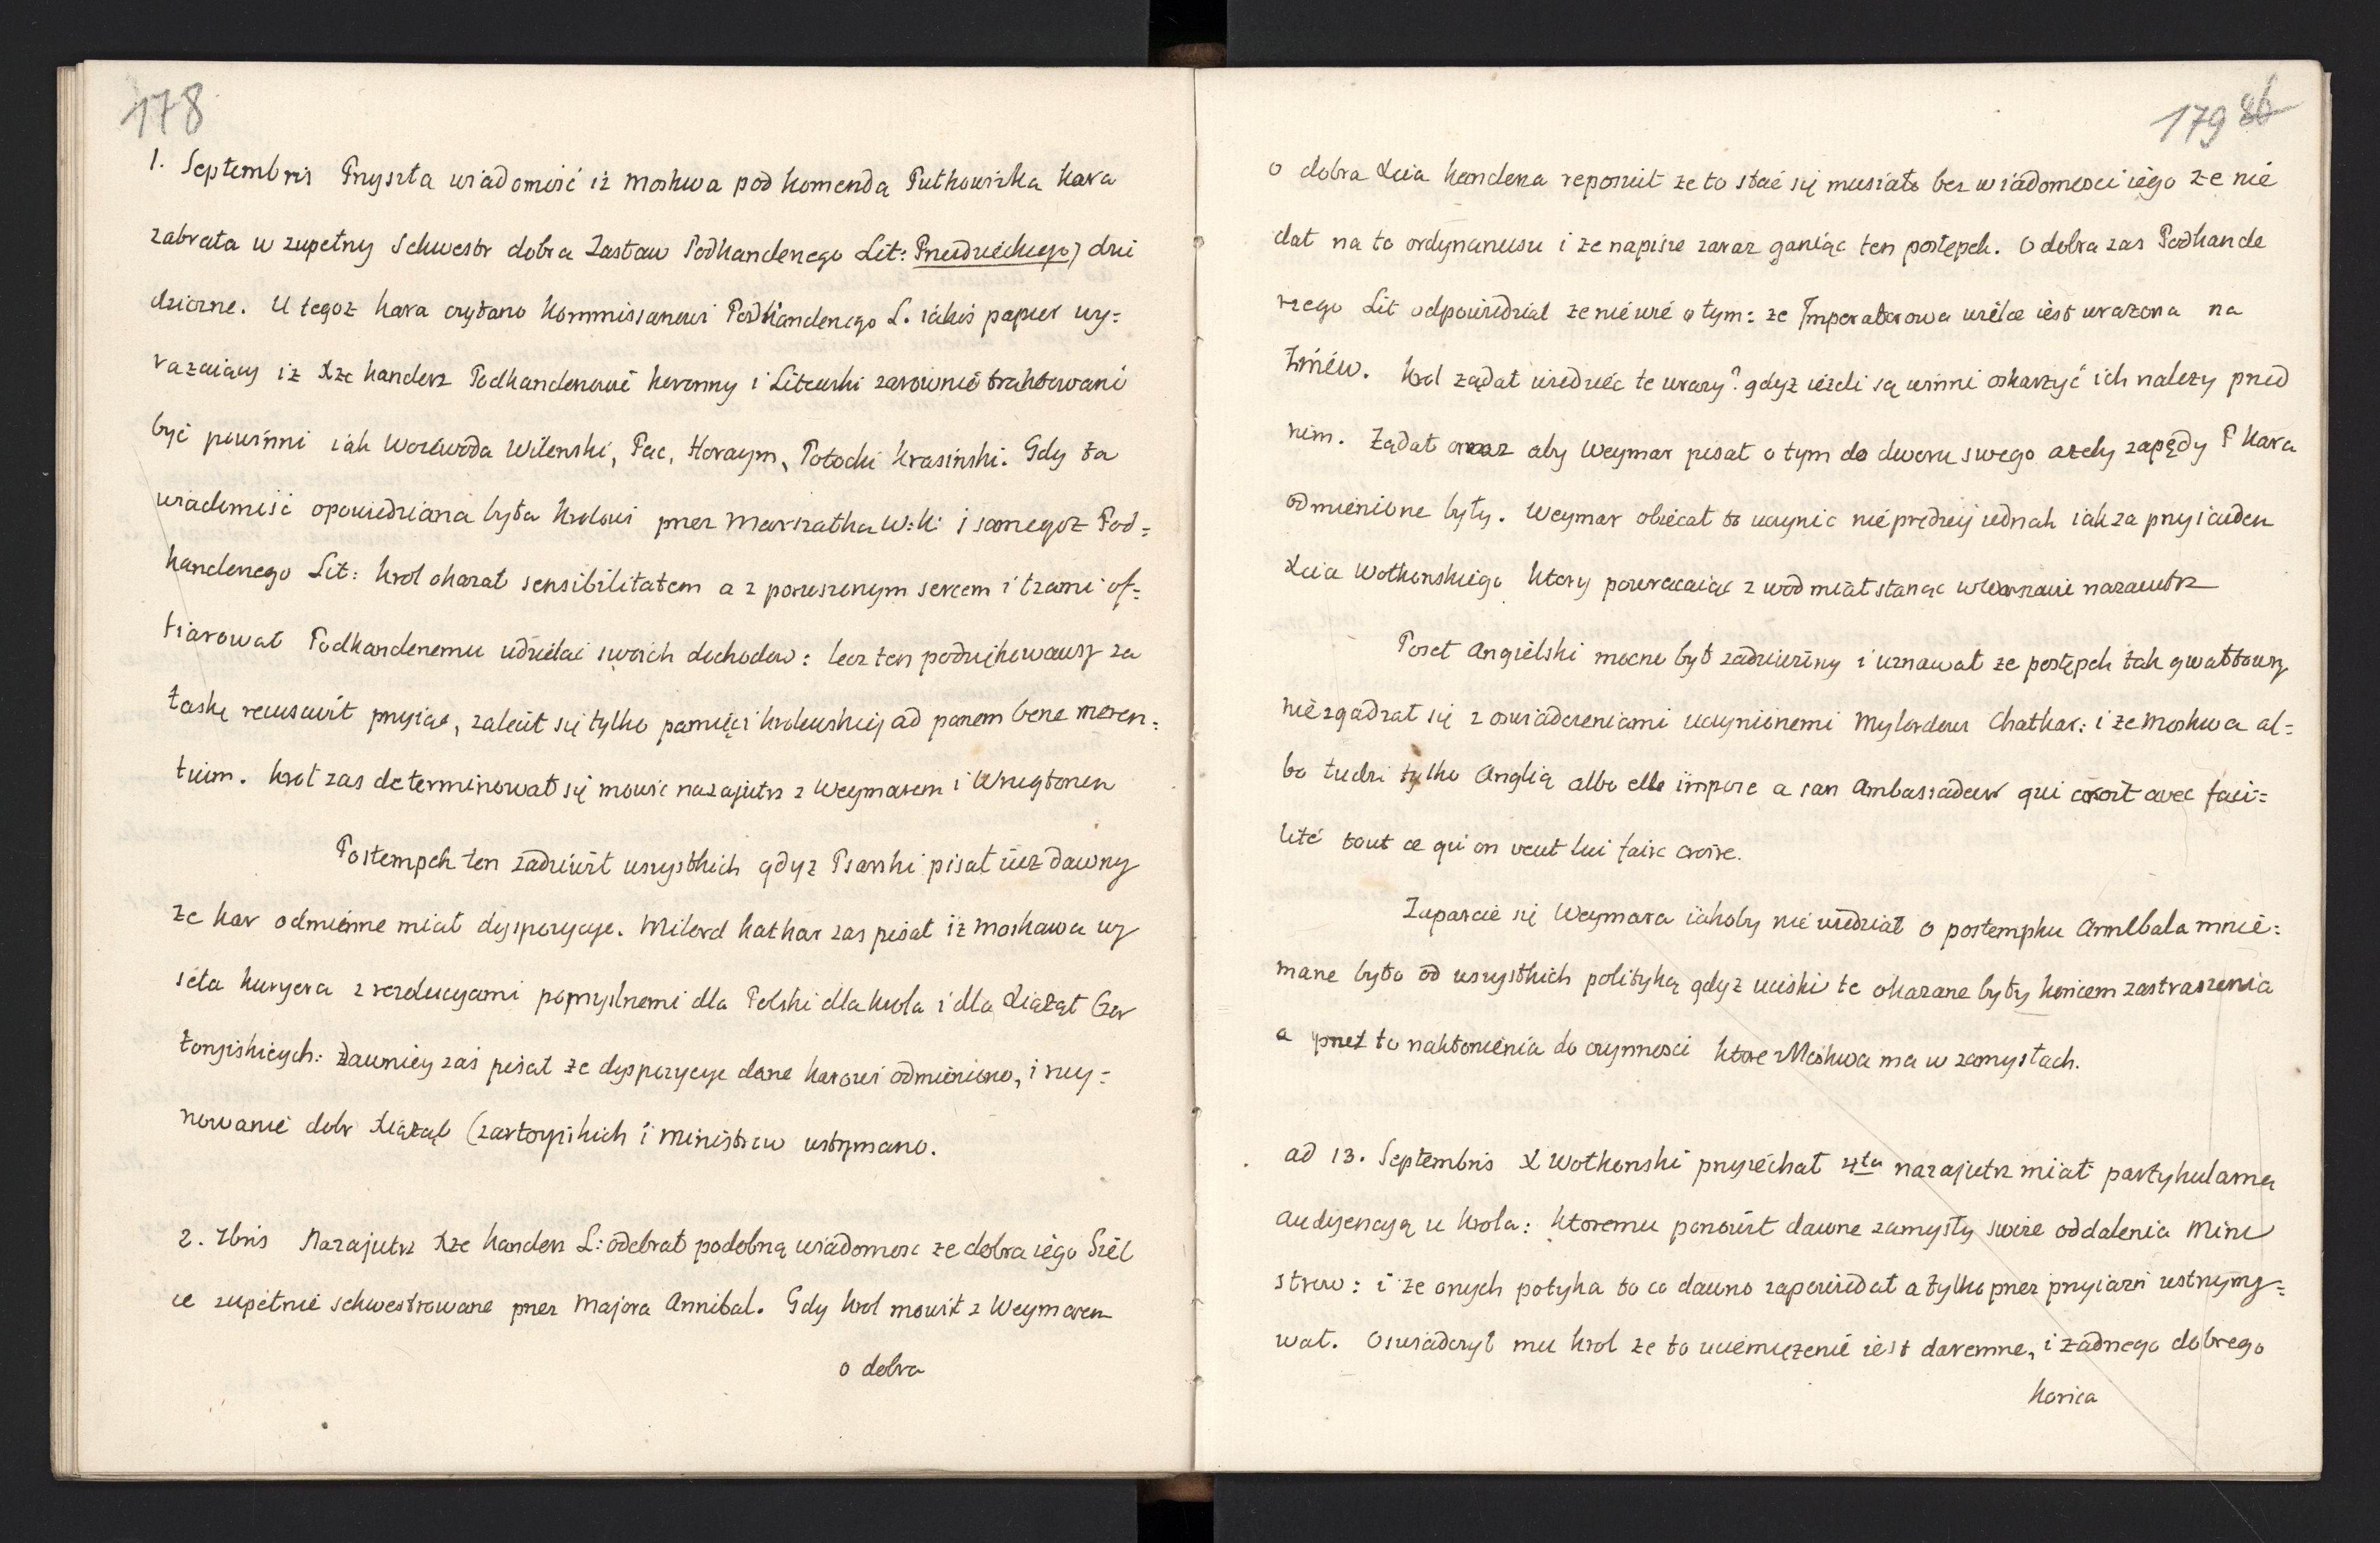 178
1. Septembris Przyszła wiadomość iż Moskwa pod komendą Pułkownika Kara
zabrała w zupełny sekwestr dobra Zastaw Podkanclerzego Lit: Przezdzieckiego) dzie
dziczne. U tegoż Kara czytano Kommissarzowi Podkanclerzego L. iakiś papier wy=
rażaiący iż Xże kanclerz Podkanclerzowie koronny i Litewski zarownie traktowani
być powinni iak Woiewoda Wilenski, Pac, Horaym, Potocki Krasiński. Gdy ta
wiadomość opowiedziana była Krolowi przez Marszałka W: K: i samegoż Pod=
kanclerzego Lit: Krol okazał sensibilitatem a z poruszonym sercem i łzami of=
fiarował Podkanclerzemu udzielać swoich dochodow: lecz ten podziękowawszy za
łaskę recusavit przyiąć, zalecił się tylko pamięci krolewskiey ad panem bene meren=
tium. Krol zas determinował się mowić nazajutrz z Weymarem i Wregtonem
Postempek ten zadziwił wszystkich gdyz Psarski pisał iuz dawny
ze Kar odmienne miał dyspozycye. Milord Kathkar zas pisał iż Moskawa wy
seła kuryera z rezolucyami pomyslnemi dla Polski dla Krola i dla Xiążąt Czar
toryiskieych: dawniey zaś pisał ze dyspozycye dane Karowi odmieniono, i ruy=
nowanie dobr Xiążąt Czartoryiskich i Ministrow wstrzymano.
2. 7bris Nazajutrz Xże kanclerz L: odebrał podobną wiadomosc ze dobra iego Siel
ce zupełnie sekwestrowane przez Majora Annibal. Gdy Krol mowił z Weymarem
o dobra
179 86
o dobra Xcia kanclerza reposuit ze to stać się musiało bez wiadomosci iego ze nie
dał na to ordynansu i ze napisze zaraz ganiąc ten postępek. O dobra zas Podkancle
rzego Lit odpowiedział ze nie wie o tym: ze Imperatorowa wielce iest urażona na
Zmiew. Krol ządał wiedzieć te urazy? gdyż ieżeli są winni oskarżyć ich nalezy przed
nim. Żądał oraz aby Weymar pisał o tym do dworu swego azeby zapędy P Kara
odmienione były. Weymar obiecał to uczynic nie prędzey iednak iak za przyiazdem
Xcia Wołkonskiego ktory powracaiąc z wod miał stanąc w Warszawie nazaiutrz
Poseł Angielski mocno był zadziwiony i uznawał ze postępek tak gwałtowny
nie zgadzał się z oswiadczeniami uczynionemi Mylordowi Chatkar: i ze Moskwa al=
bo łudzi tylko Anglią albo elle impose a san Ambassadeur qui croit avec faci=
lité tout ce qu'on veut lui faire croire.
Zaparcie się Weymara iakoby nie wiedział o postempku Annibala mnie=
mane było od wszystkich polityką gdyz uciski te okazane były końcem zastraszenia
a przez to nakłonienia do czynnosci ktore Moskwa ma w zamysłach.
ad 13. Septembris X Wołkonski przyiechał 4ta nazajutrz miał partykularną
audyencyą u Krola: ktoremu ponowił dawne zamysły swoie oddalenia Mini
strow: i ze onych potyka to co dawno zapowiedał a tylko przez przyiazń wstrzymy=
wał. Oswiadczył mu Krol ze to uciemięzenie iest daremne, i zadnego dobrego
końca